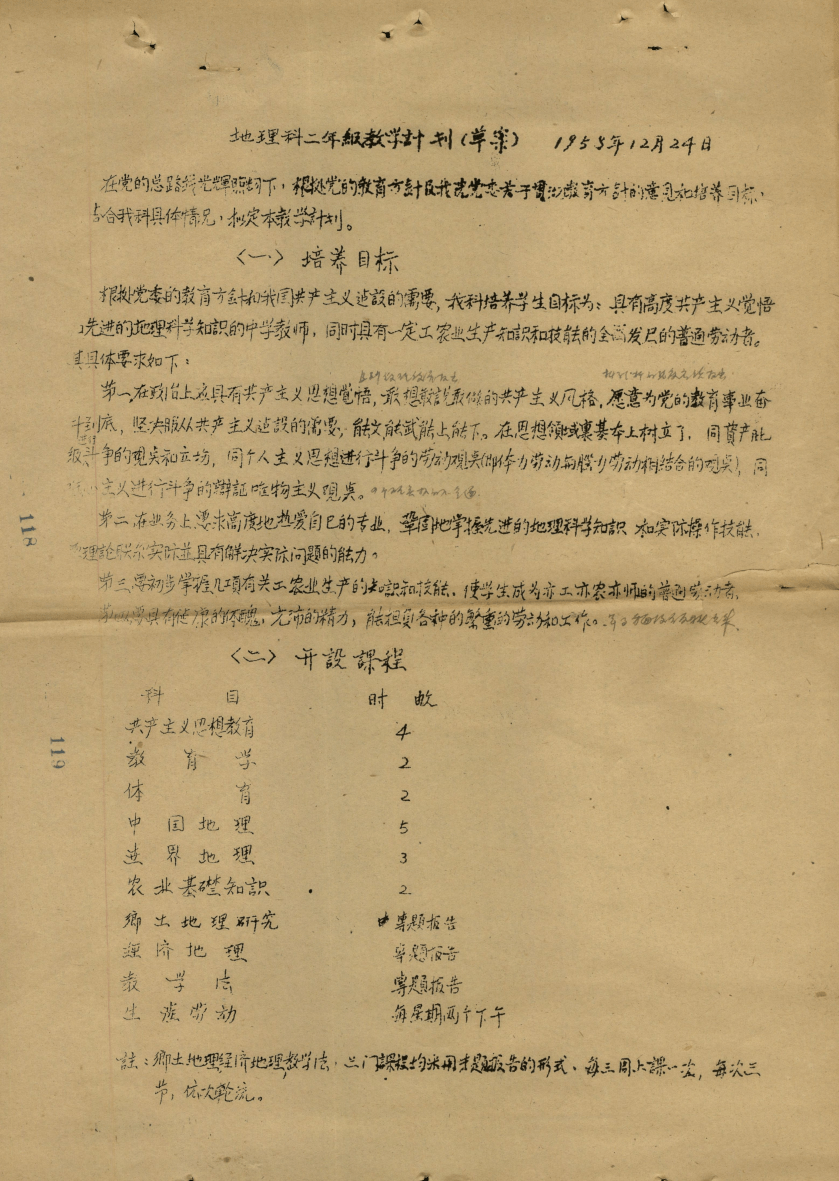 地理科二年級教学計刊（草案） 1958年12月24日
在党的总路线光輝照耀下，根据党的教育方針及我院党委若于貫彻教育方針的意見和培养目标，
结合我科具体情况，拟定本教学計刬。
〈一〉 培养目标
根据党委的教育方針和我国共产主义建設的需要，我科培养学生目标为：具有高度共产主义觉悟
先进的地理科学知識的中学教师，同时具有一定工农业生产知识和技能的全面发尸的普通劳动者。
其具体要求如下：
第一，在政治上应具有共产主义思想觉悟，敢想敢説敢做的共产主义风格，愿意为党的教育事业奋
斗到底，坚决服从共产主义建設的需要，能文能武能上能下。在思想領域裏基本上树立了，同資产阶
級斗争的观点和立场，同个人主义思想进行斗争的劳动观点（即体力劳动与腦力劳动相结合的观点），同
主义进行斗争的辩証唯物主义观点。
第二，在业务上要求高度地热爱自己的专业，鞏固地掌握先进的地理科学知識 和实际操作技能，
理論联系实际並具有解决实际问题的能力。
第三，要初步掌握几項有关工农业生产的知識和技能，使学生成为亦工亦农亦师的普通劳动者，
第四，要具有健康的体魄，充沛的精力，能担負各种的繁重的劳动和工作。
〈二〉 开設課程
科 目 时 数
共产主义思想教育 4
教 育 学 2
体 育 2
中 国 地 理 5
世 界 地 理 3
农业基礎知識 2
鄉土地理研究 專題报告
經济地理 專題报告
教 学 法 專題报告
生 产 劳 动 每星期两个下午
註：鄉土地理经济地理教学法，三门課程均采用专題报告的形式，每三周上課一次，每次三
节，依次輪流。
118
119